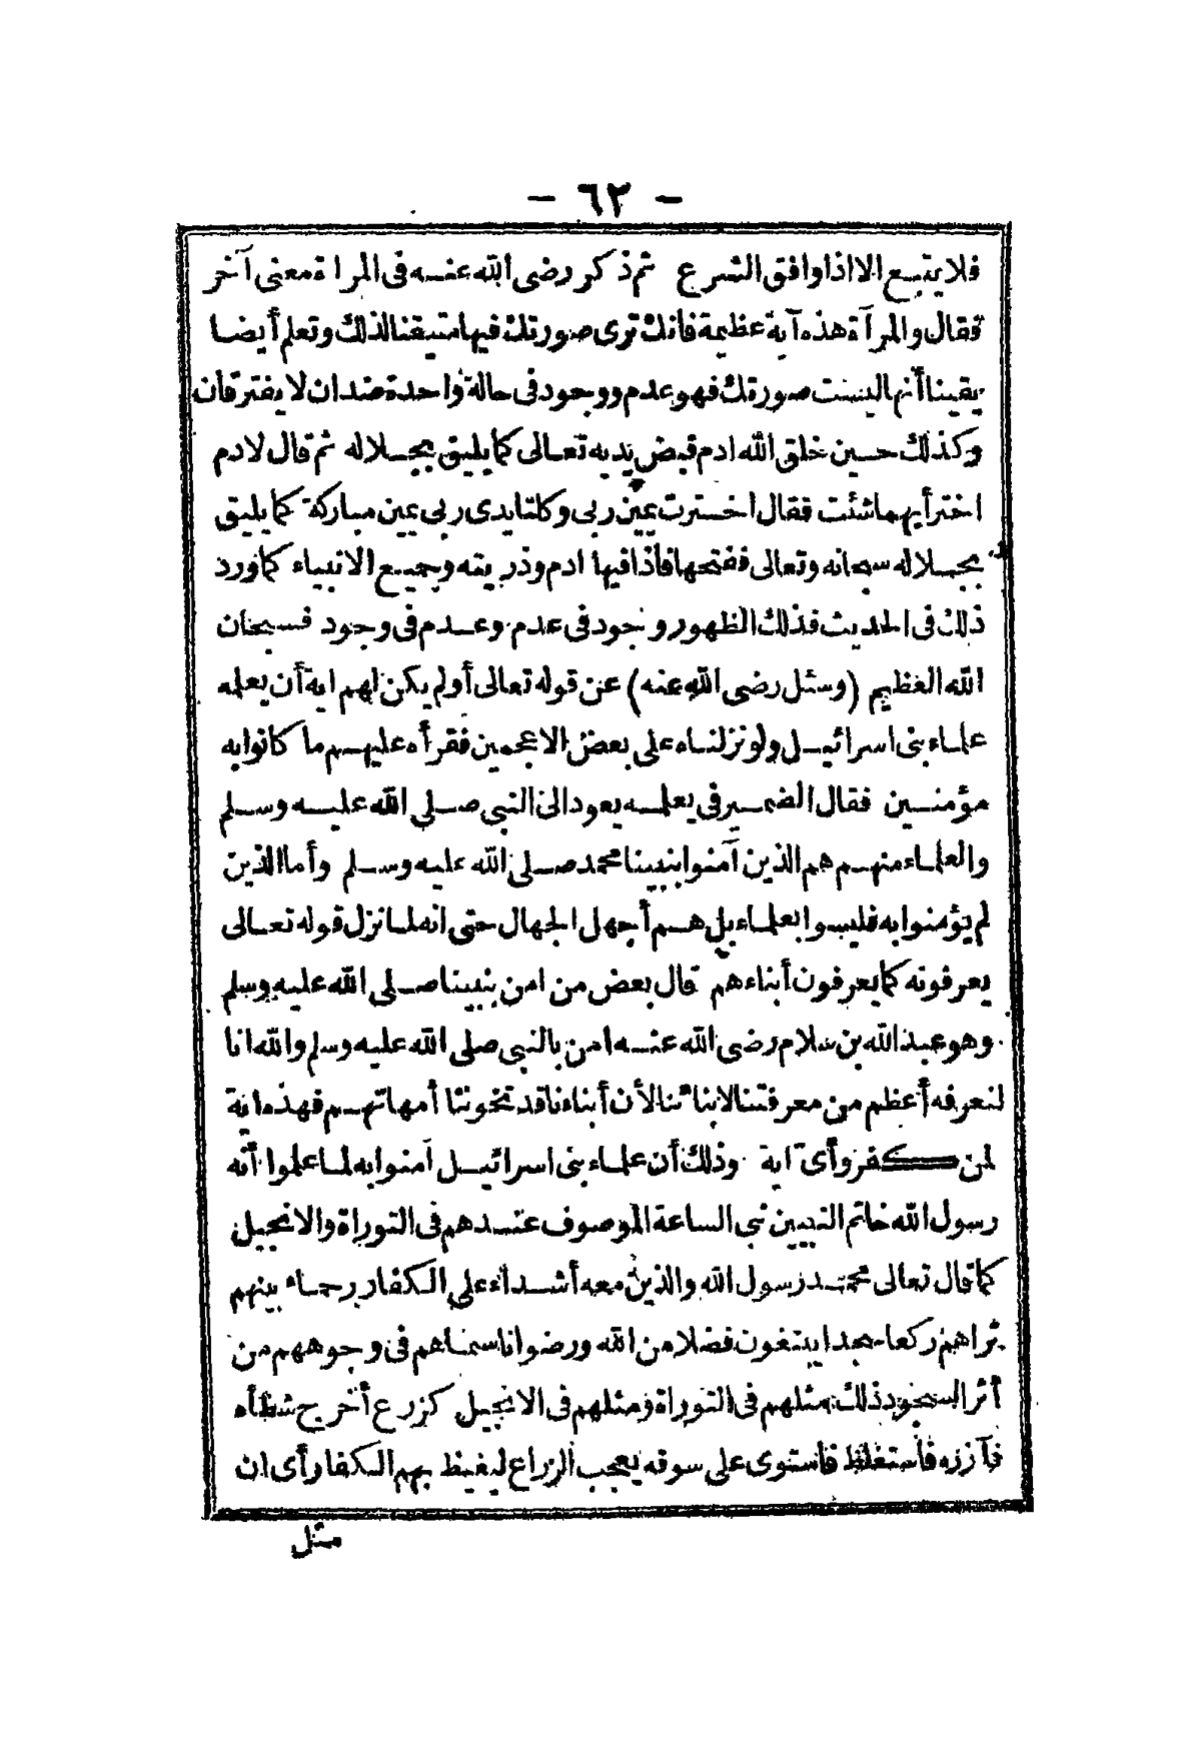 - ٦٣ -
فلا يتبع الا اذا وافق الشرع ثم ذكر رضى الله عنه فى المراة معنى آخر
فقال والمرآة هذه آية عظيمة فانك ترى صورتك فيها متيقنا لذلك وتعلم أيضا
يقينا أنها ليست صورتك فهو عدم ووجود فى حالة واحدة ضدان لا يفترقان
وكذلك حين خلق الله ادم قبض يديه تعالى كما يليق بجلاله ثم قال لادم
اختر أيهما شئت فقال اخترت يمين ربى وكلتا يدى ربى يمين مباركة كما يليق
بجلاله سبحانه وتعالى ففتحها فاذا فيها ادم وذريته وجميع الانبياء كما ورد
ذلك فى الحديث فذلك الظهور وجود فى عدم وعدم فى وجود فسبحان
الله العظيم (وسئل رضى الله عنه) عن قوله تعالى أولم يكن لهم اية أن يعلمه
علماء بنى اسرائيل ولو نزلناه على بعض الاعجمين فقرأه عليهم ما كانوا به
مؤمنين فقال الضمير فى يعلمه يعود الى النبى صلى الله عليه وسلم
والعلماء منهم هم الذين آمنوا بنبينا محمد صلى الله عليه وسلم وأما الذين
لم يؤمنوا به فليسوا بعلماء بل هم أجهل الجهال حتى انه لما نزل قوله تعالى
يعرفونه كما يعرفون أبناءهم قال بعض من امن بنبينا صلى الله عليه وسلم
وهو عبد الله بن سلام رضى الله عنه امن بالنبى صلى الله عليه وسلم والله انا
لنعرفه أعظم من معرفتنا لابنائنا لأن أبناءنا قد تخوننا أمهاتهم فهذه اية
لمن كفر وأى آية وذلك أن علماء بنى اسرائيل آمنوا به لما علموا أنه
رسول الله خاتم النبيين نبى الساعة الموصوف عندهم فى التوراة والانجيل
كما قال تعالى محمد رسول الله والذين معه أشداء على الكفار رحماء بينهم
تراهم ركعا سجدا يبتغون فضلا من الله ورضوانا سيماهم فى وجوههم من
أثر السجود ذلك مثلهم فى التوراة ومثلهم فى الانجيل كزرع أخرج شطأه
فآزره فاستغلظ فاستوى على سوقه يعجب الزراع ليغيظ بهم الكفار أى ان
مثل